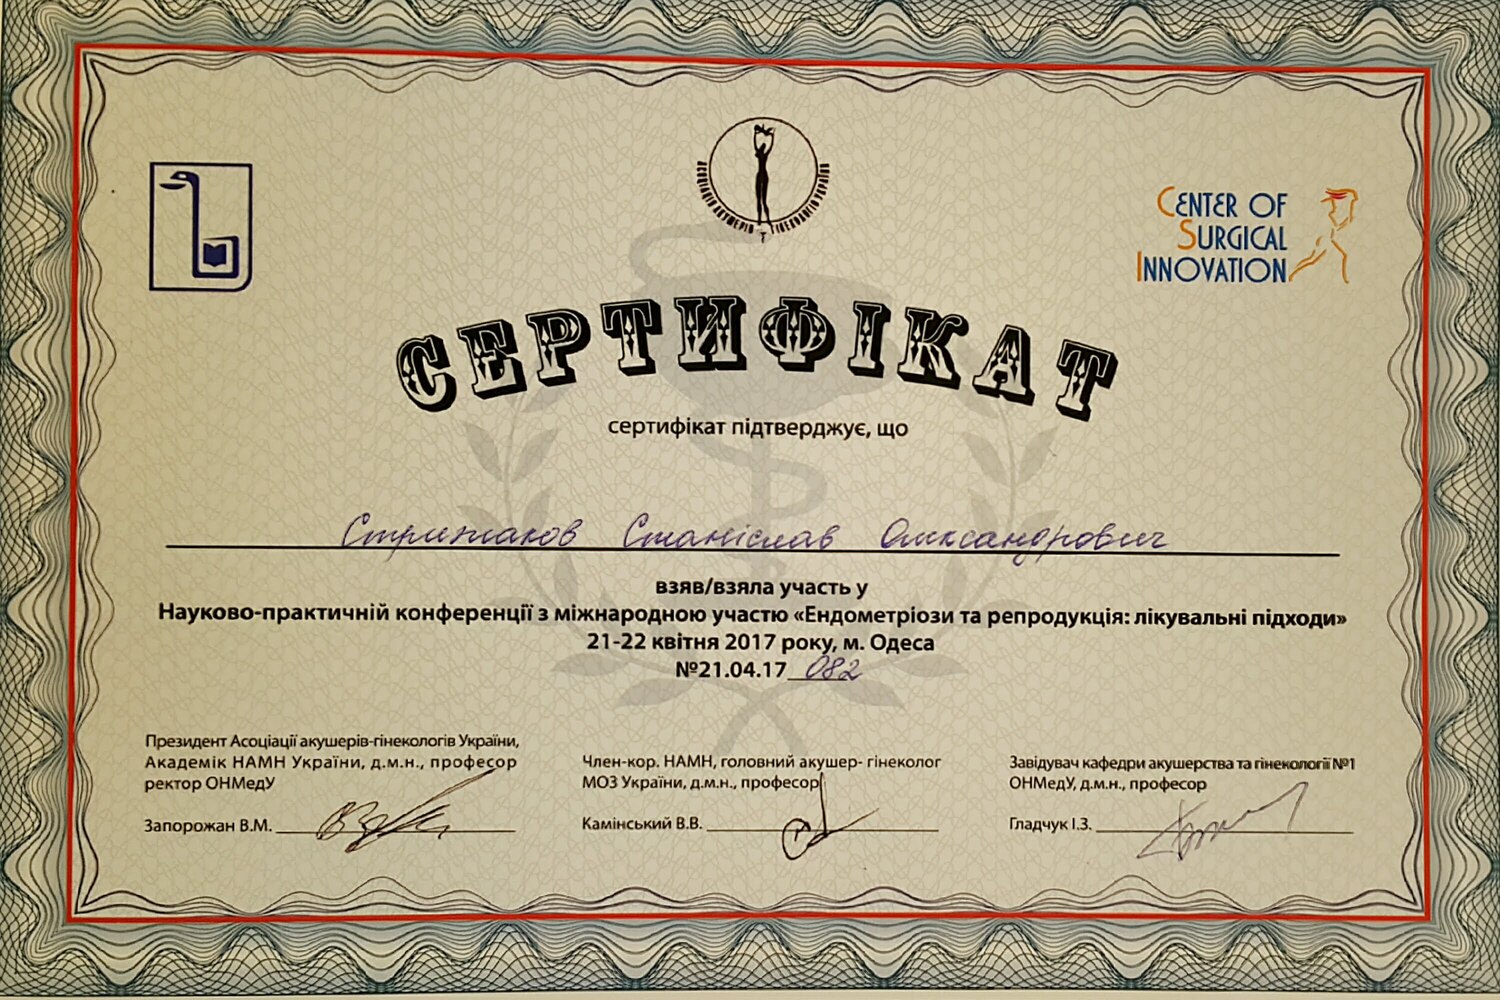 АСОЦІАЦІЯ АКУШЕРІВ ГІНЕКОЛОГІВ УКРАЇНИ
CENTER OF
SURGICAL
INNOVATION
СЕРТИФІКАТ
сертифікат підтверджує, що
Стрижаков Станіслав Олександрович
взяв/взяла участь у
Науково-практичній конференції з міжнародною участю «Ендометріози та репродукція: лікувальні підходи»
21-22 квітня 2017 року, м. Одеса
№21.04.17 082
Президент Асоціації акушерів-гінекологів України,
Академік НАМН України, д.м.н., професор
ректор ОНМедУ
Запорожан В.М.
Член-кор. НАМН, головний акушер- гінеколог
МОЗ України, д.м.н., професор
Камінський В.В.
Завідувач кафедри акушерства та гінекології №1
ОНМедУ, д.м.н., професор
Гладчук І.З.